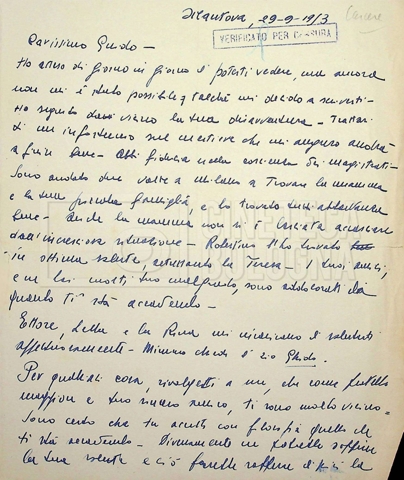 Mantova, 29-9-1973
Carcere
VERIFICATO PER CENSURA
Carissimo Guido -
Ho atteso di giorno in giorno di poterti vedere, ma ancora
non mi è stato possibile, talché mi decido a scriverti -
Ho seguito da vicino la tua disavventura - Trattasi
di un infortunio sul mestiere che mi auguro andrà
a finir bene - Abbi fiducia nella coscienza dei magistrati -
Sono andato due volte a Milano a trovare la mamma
e la tua piccola famiglia, e ho trovato tutti abbastanza
bene - Anche la mamma non si è lasciata accasciare
dall'incresciosa situazione - Robertino l'ho trovato
in ottima salute, altrettanto la Teresa - I tuoi amici,
e ne hai molti tuo malgrado, sono addolorati da
quanto ti sta accadendo -
Ettore, Lella e la Rina mi incaricano di salutarti
affettuosamente - Mimmo chiede di zio Guido.
Per qualsiasi cosa, rivolgetti a me, che come fratello
maggiore e tuo sincero amico, ti sono molto vicino -
Sono certo che tu accetti con filosofia quello che
ti sta accadendo - Diversamente ne potrebbe soffrire
la tua mente e ciò farebbe soffrire di più la